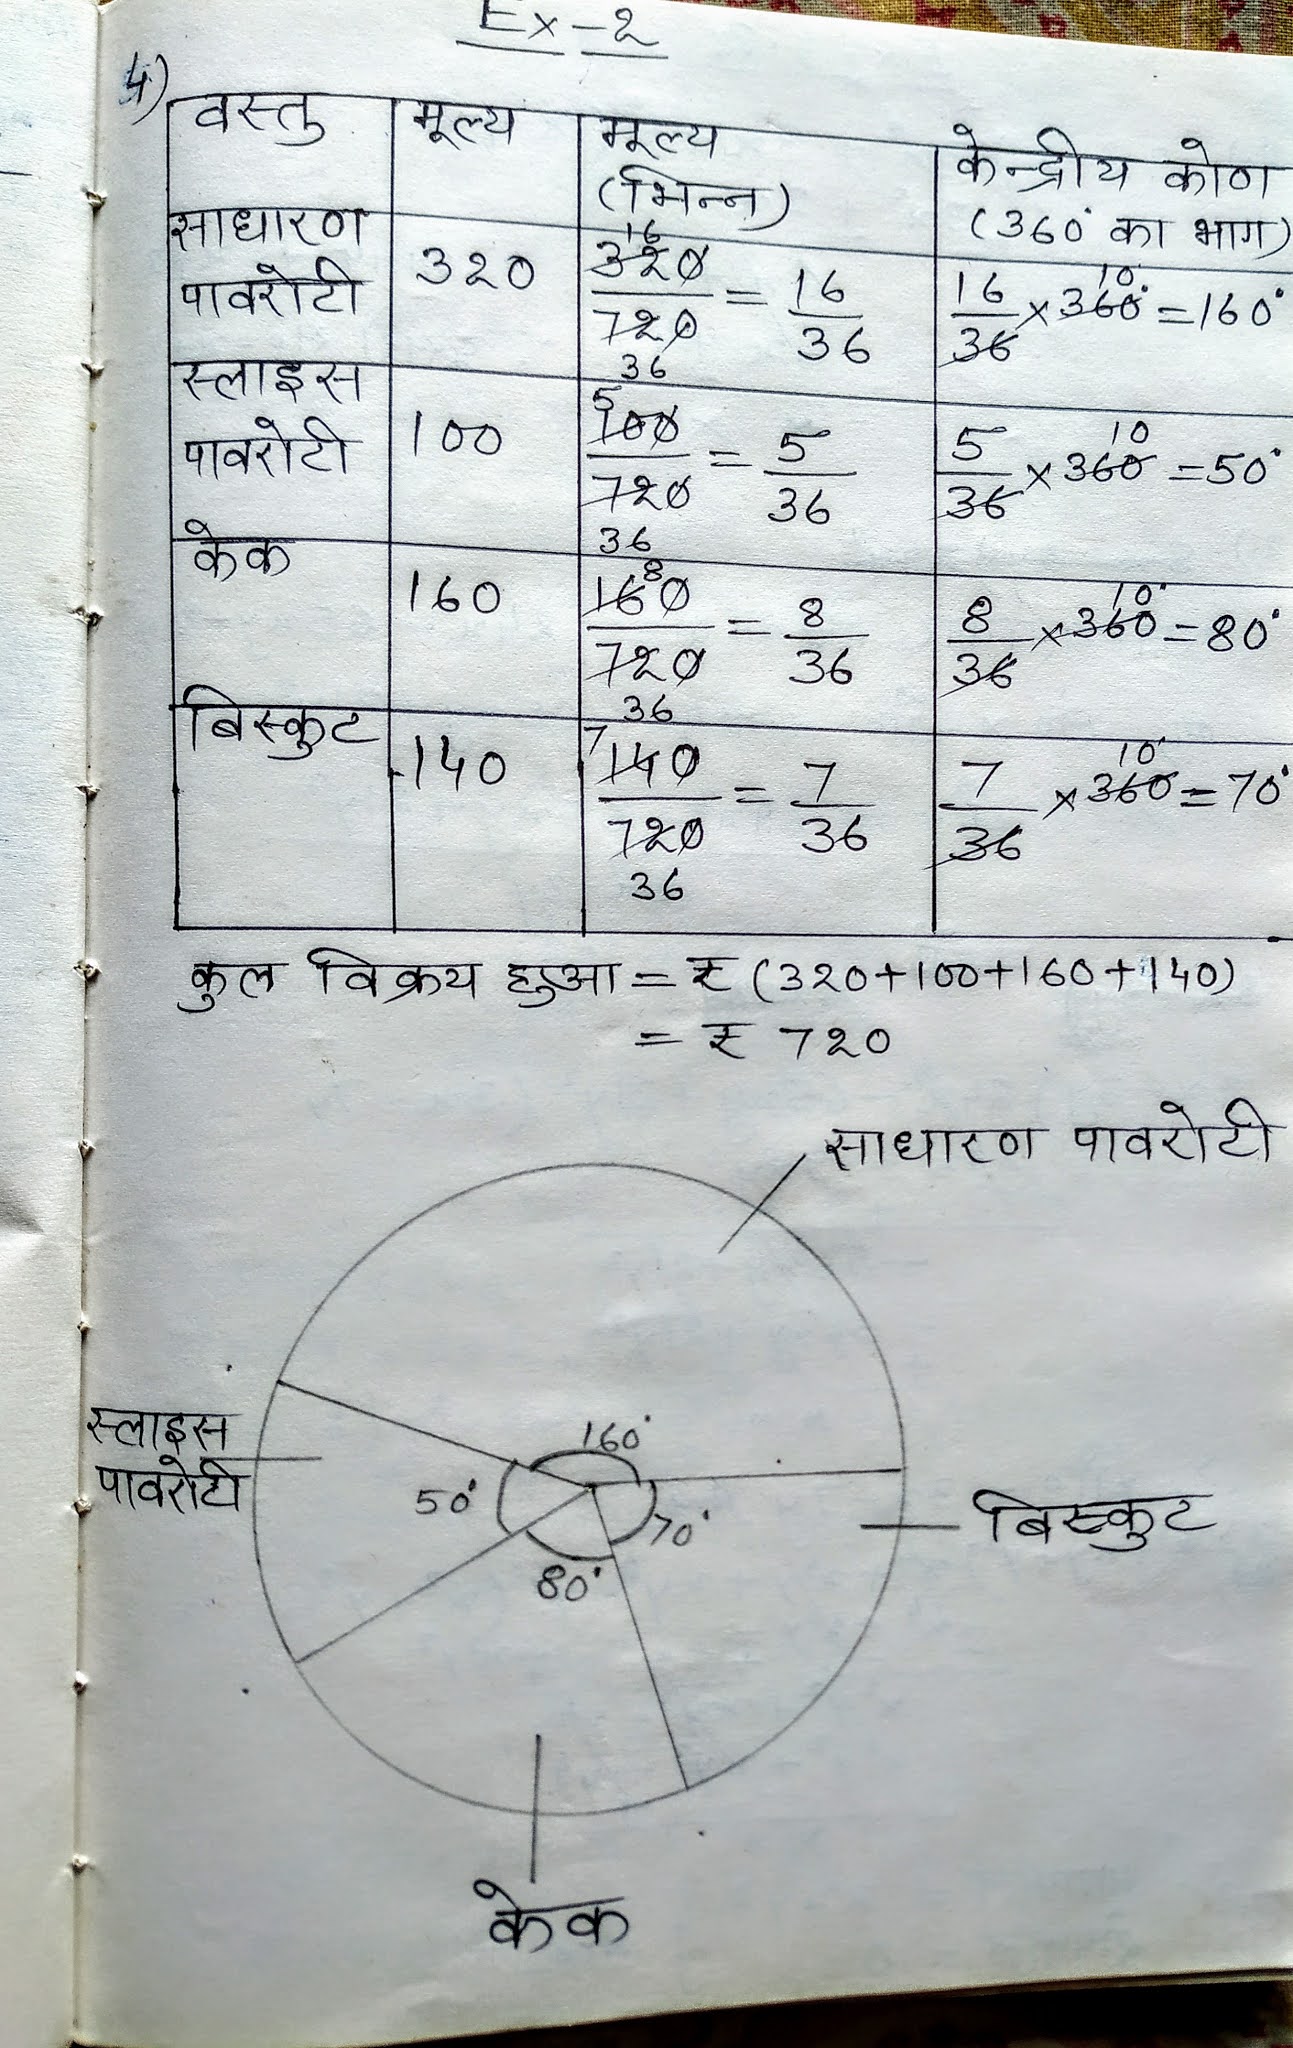 Ex-2
4)
वस्तु मूल्य मूल्य (भिन्न) केन्द्रीय कोण (360° का भाग)
साधारण पावरोटी 320 320/720 16 36 = 16/36 16/36 × 360° 10 = 160°
स्लाइस पावरोटी 100 100/720 5 36 = 5/36 5/36 × 360 10 = 50°
केक 160 160/720 8 36 = 8/36 8/36 × 360 10° = 80°
बिस्कुट 140 140/720 7 36 = 7/36 7/36 × 360 10° = 70°
कुल विक्रय हुआ = ₹ (320+100+160+140)
= ₹ 720
साधारण पावरोटी
स्लाइस
पावरोटी
160°
50°
70°
80°
बिस्कुट
केक